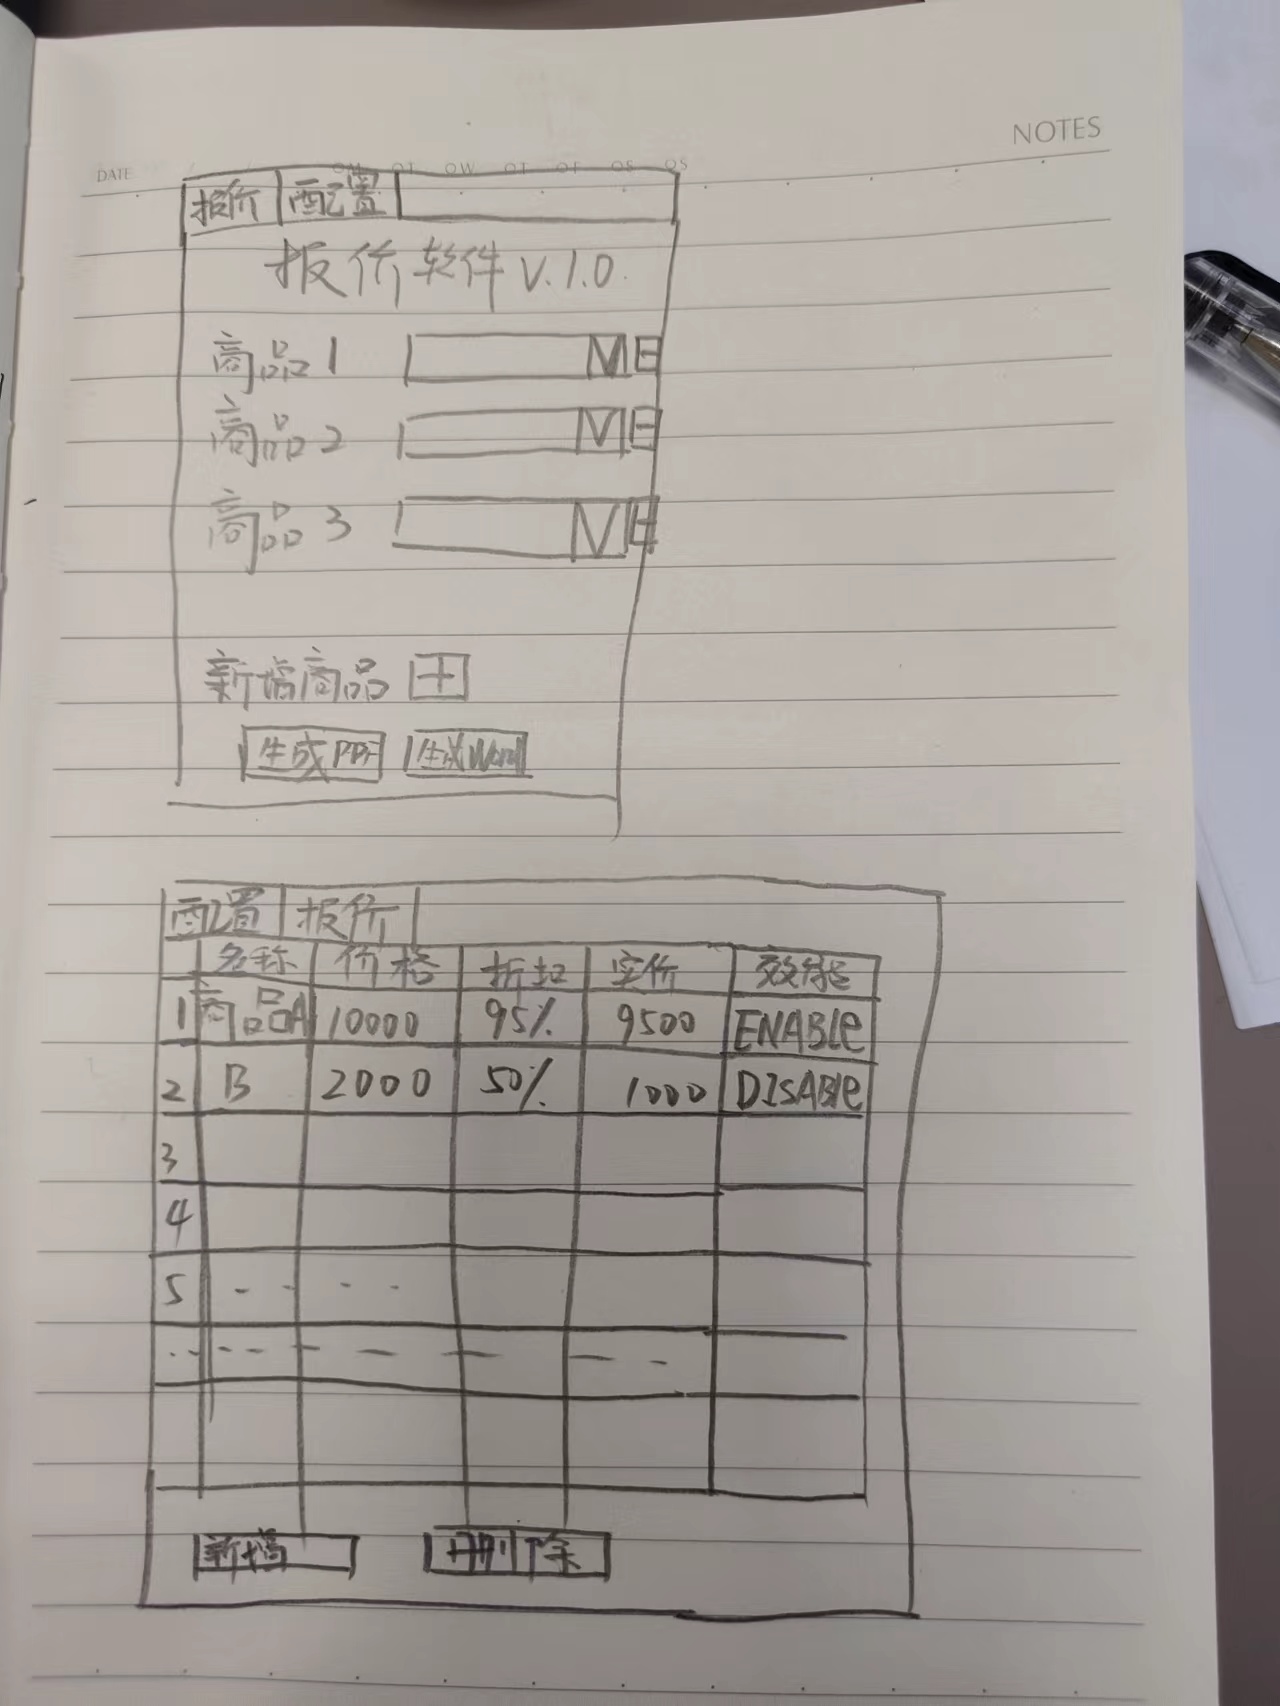 NOTES
DATE
报价 配置
报价软件 V.1.0
商品1 V
商品2 V
商品3 V
新增商品 +
生成PDF 生成Word
配置 报价
名称 价格 折扣 实价
1 商品A 10000 95% 9500 ENABLE
2 B 2000 50% 1000 DISABLE
3
4
5
新增 删除